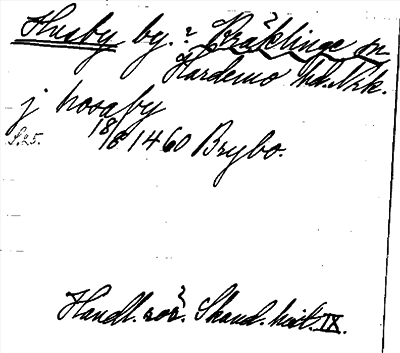 Husby by. ? Kräklinge sn
Hardemo hd. Nrk.
j hwsaby
S. 25. 18/6 1460 Brybo.
Handl. rör. Skand. hist. IX.